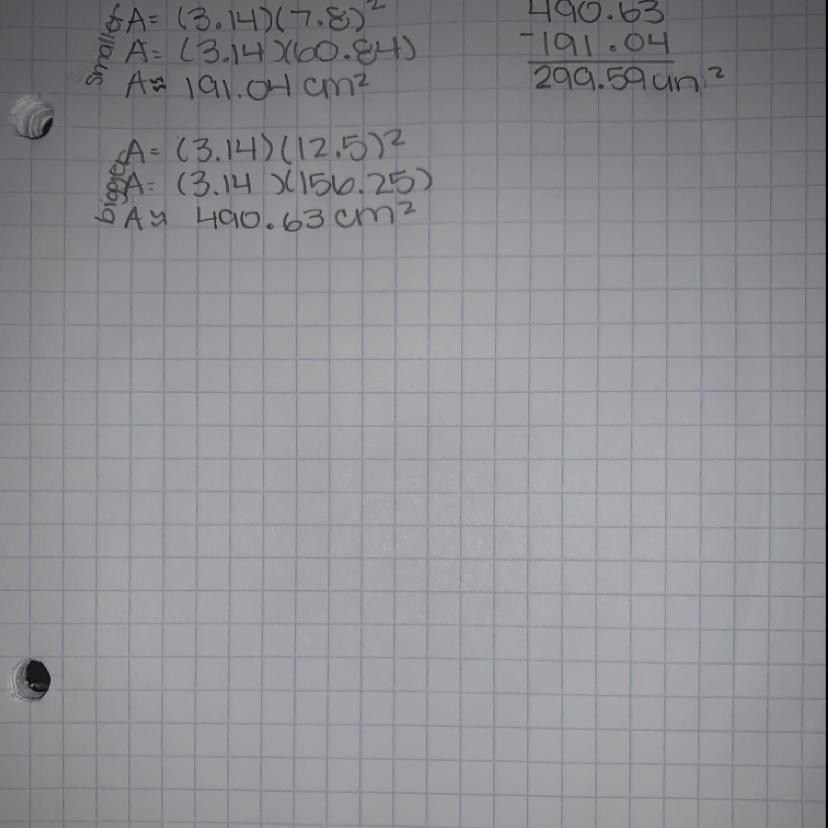 smaller
A= (3.14)(7.8)²
A= (3.14)(60.84)
A≈ 191.04 cm²
490.63
-191.04
299.59 cm²
bigger
A= (3.14)(12.5)²
A= (3.14)(156.25)
A≈ 490.63 cm²